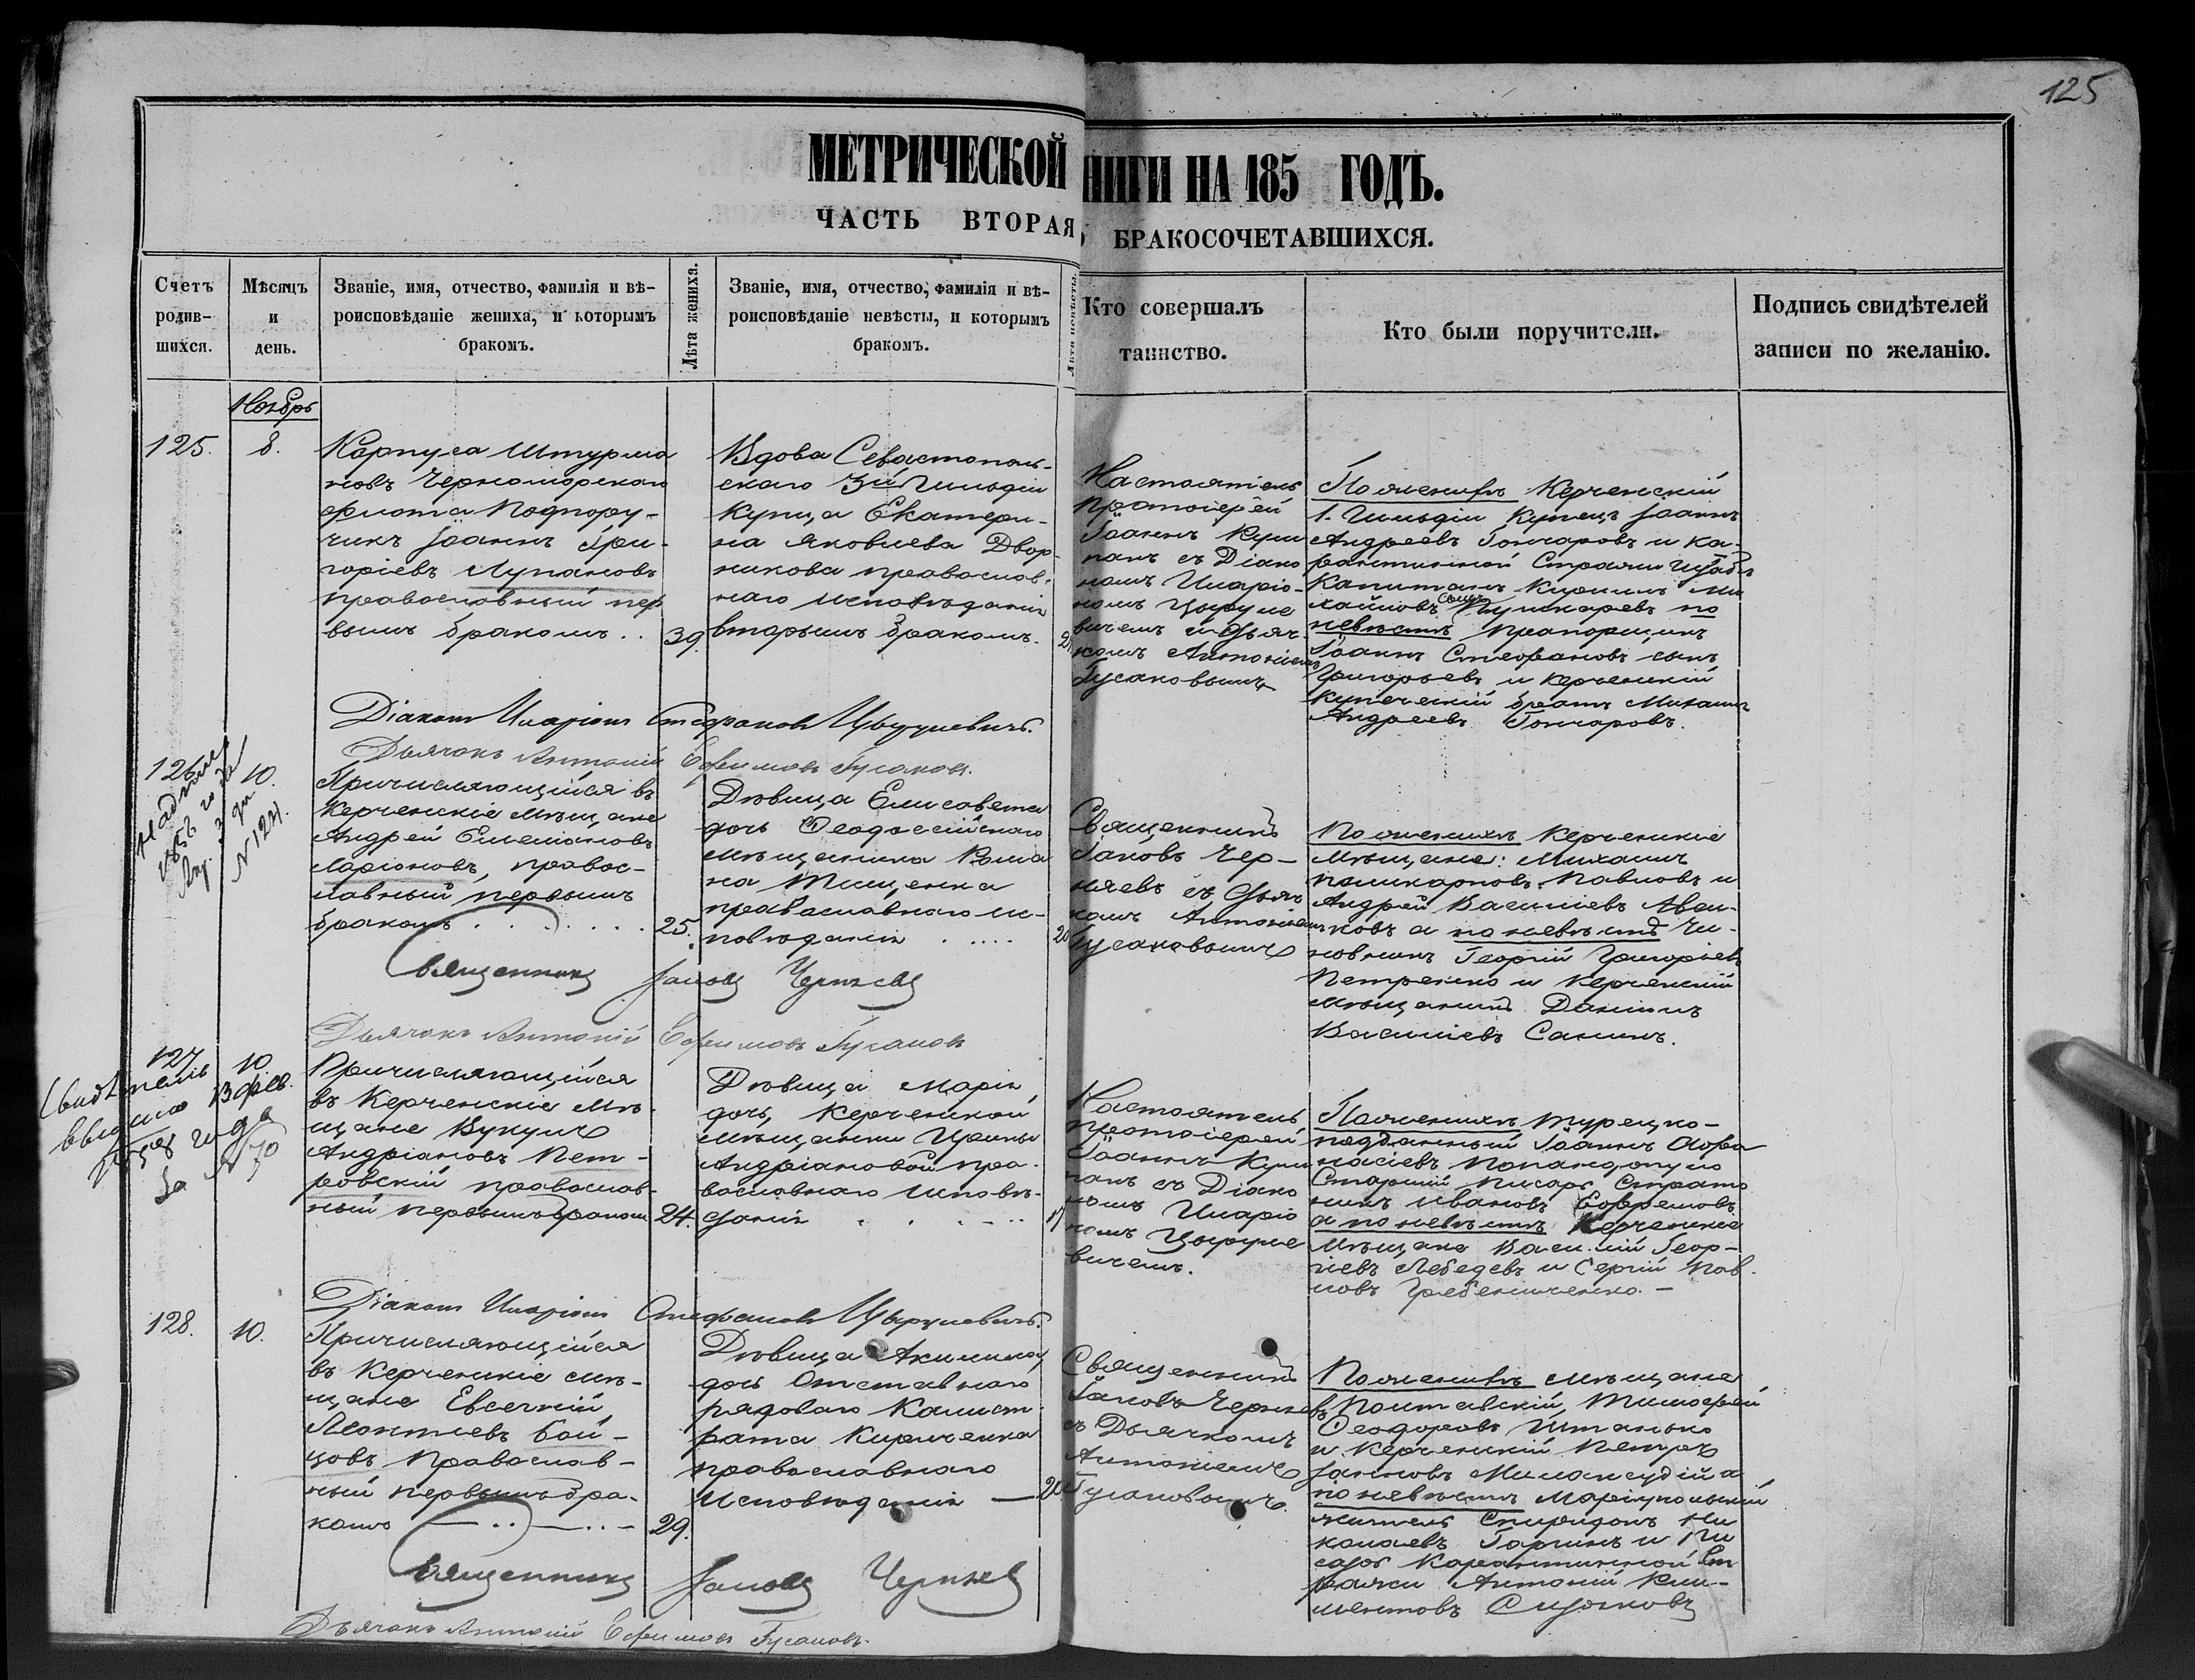 125
МЕТРИЧЕСКОЙ
НИГИ НА 185 ГОДЪ.
ЧАСТЬ ВТОРАЯ
БРАКОСОЧЕТАВШИХСЯ.
Счетъ
родив-
шихся.
Мѣсяцъ
и
день.
Званіе, имя, отчество, фамилія и вѣ-
роисповѣданіе жениха, и которымъ
бракомъ.
Лѣта жениха.
Званіе, имя, отчество, фамилія и вѣ-
роисповѣданіе невѣсты, и которымъ
бракомъ.
Лѣта невѣсты.
Кто совершалъ
таинство.
Кто были поручители.
Подпись свидѣтелей
записи по желанію.
Ноябрь
125.
8.
Корпуса Штурма
новъ Черноморскаго
флота Подпору-
чикъ Іоаннъ Гри-
горіевъ Лупановъ
православный пер
вымъ бракомъ..
39.
Вдова Севастополь-
скаго 3й Гильдіи
Купца Екатери-
на Яковлева Двор-
никова православ-
наго исповѣданія
вторымъ бракомъ.
Настоятель
Протоіерей
Іоаннъ Куш
панъ съ Діако
номъ Иларіо-
номъ Цыруле
вичемъ и Дьяч-
комъ Антоніемъ
Гусаковымъ
По женихѣ Керченскій
1. Гильдіи Купецъ Іоаннъ
Андреевъ Гончаровъ и Ка-
рантинной Стражи Штабсъ
Капитанъ Кириллъ Ми
хайловъ сынъ Пушкаревъ по
невѣстѣ Прапорщикъ
Іоаннъ Стефановъ сынъ
Григорьевъ и Керченскій
купеческій братъ Михаилъ
Андреевъ Гончаровъ.
Діаконъ Иларіонъ Стефановъ Цырулевичъ.
Дьячокъ Антоній Ефимовъ Гусаковъ.
126.
10.
1856 года
N 124.
Причисляющійся въ
Керченскіе мѣщане
Андрей Емельяновъ
Ларіоновъ, правос-
лавный первымъ
бракомъ
25.
Дѣвица Елисавета
дочь Ѳеодосійскаго
мѣщанина Рома
на Тищенка
православнаго ис-
повѣданія
20
Священникъ
Іаковъ Чер-
няевъ съ Дьяч
комъ Антоніемъ
Гусаковымъ
По женихѣ Керченскіе
мѣщане: Михаилъ
Поликарповъ Павловъ и
Андрей Васильевъ Авси-
ковъ а по невѣстѣ Чи-
новникъ Георгій Григорьевъ
Петренко и Керченскій
мѣщанинъ Даніилъ
Васильевъ Санинъ.
Священникъ Іаковъ Черняевъ
Дьячокъ Антоній Ефимовъ Гусаковъ
127
10.
Свидѣтель
выдано 13 фев.
1858 года
за N 70
Причисляющійся
въ Керченскіе мѣ-
щане Вукулъ
Андріановъ Пет-
ровскій православ-
ный первымъ бракомъ
24.
Дѣвица Марія
дочь, Керченской
мѣщанки Ирины
Андріановой пра-
вославнаго исповѣ-
данія
17
Настоятель
Протоіерей
Іоаннъ Куш
панъ съ Діако
номъ Иларіо
номъ Цыруле
вичемъ.
По женихѣ Турецко-
подданный Іоаннъ Аѳа
насіевъ Попандопуло
Старшій Писарь Страто
никъ Ивановъ Ефремовъ
а по невѣстѣ Керченскіе
мѣщане Василій Геор-
гіевъ Лебедевъ и Сергій Пав-
ловъ Гребениченко. —
Діаконъ Иларіонъ Стефановъ Цырулевичъ.
128.
10.
Причисляющійся
въ Керченскіе мѣ-
щане Евсегній
Леонтіевъ Бой-
цовъ Православ-
ный первымъ бра-
комъ
29.
Дѣвица Акилина,
дочь Отставнаго
рядоваго Калист-
рата Кириченка
православнаго
Исповѣданія —
20
Священникъ
Іаковъ Черняевъ
съ Дьячкомъ
Антоніемъ
Гусаковымъ.
По женихѣ мѣщане
Полтавскій, Тимофей
Ѳеодоровъ Штанько
и Керченскій Петръ
а
по невѣстѣ Маріупольскій
житель Спиридонъ Ни
колаевъ Гаринъ и Пи
сарь Карантинной Ст
ражи Антоній Кли-
ментовъ Сидоковъ
Священникъ Іаковъ Черняевъ
Дьячокъ Антоній Ефимовъ Гусаковъ.